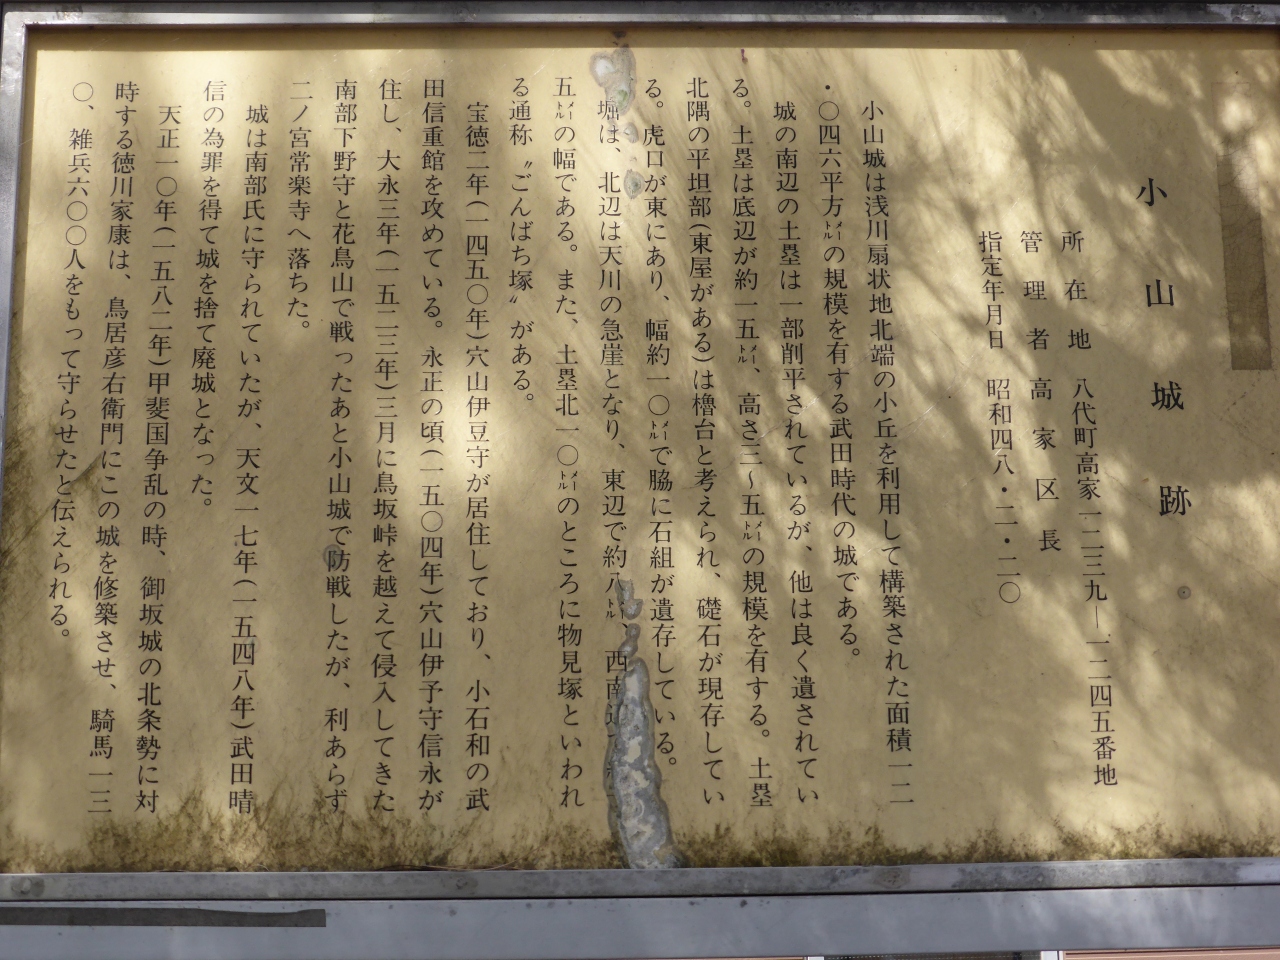 小山城跡
所在地 八代町高家一二三九―一二四五番地
管理者 高家区長
指定年月日 昭和四八・二・二〇
小山城は浅川扇状地北端の小丘を利用して構築された面積一二
・〇四六平方メートルの規模を有する武田時代の城である。
城の南辺の土塁は一部削平されているが、他は良く遺されてい
る。土塁は底辺が約一五メートル、高さ三〜五メートルの規模を有する。土塁
北隅の平坦部(東屋がある)は櫓台と考えられ、礎石が現存してい
る。虎口が東にあり、幅約一〇メートルで脇に石組が遺存している。
堀は、北辺は天川の急崖となり、東辺で約八メートル、西南
五メートルの幅である。また、土塁北一〇メートルのところに物見塚といわれ
る通称〝ごんばち塚〟がある。
宝徳二年(一四五〇年)穴山伊豆守が居住しており、小石和の武
田信重館を攻めている。永正の頃(一五〇四年)穴山伊予守信永が
住し、大永三年(一五二三年)三月に鳥坂峠を越えて侵入してきた
南部下野守と花鳥山で戦ったあと小山城で防戦したが、利あらず
二ノ宮常楽寺へ落ちた。
城は南部氏に守られていたが、天文一七年(一五四八年)武田晴
信の為罪を得て城を捨て廃城となった。
天正一〇年(一五八二年)甲斐国争乱の時、御坂城の北条勢に対
時する徳川家康は、鳥居彦右衛門にこの城を修築させ、騎馬一三
〇、雑兵六〇〇人をもって守らせたと伝えられる。